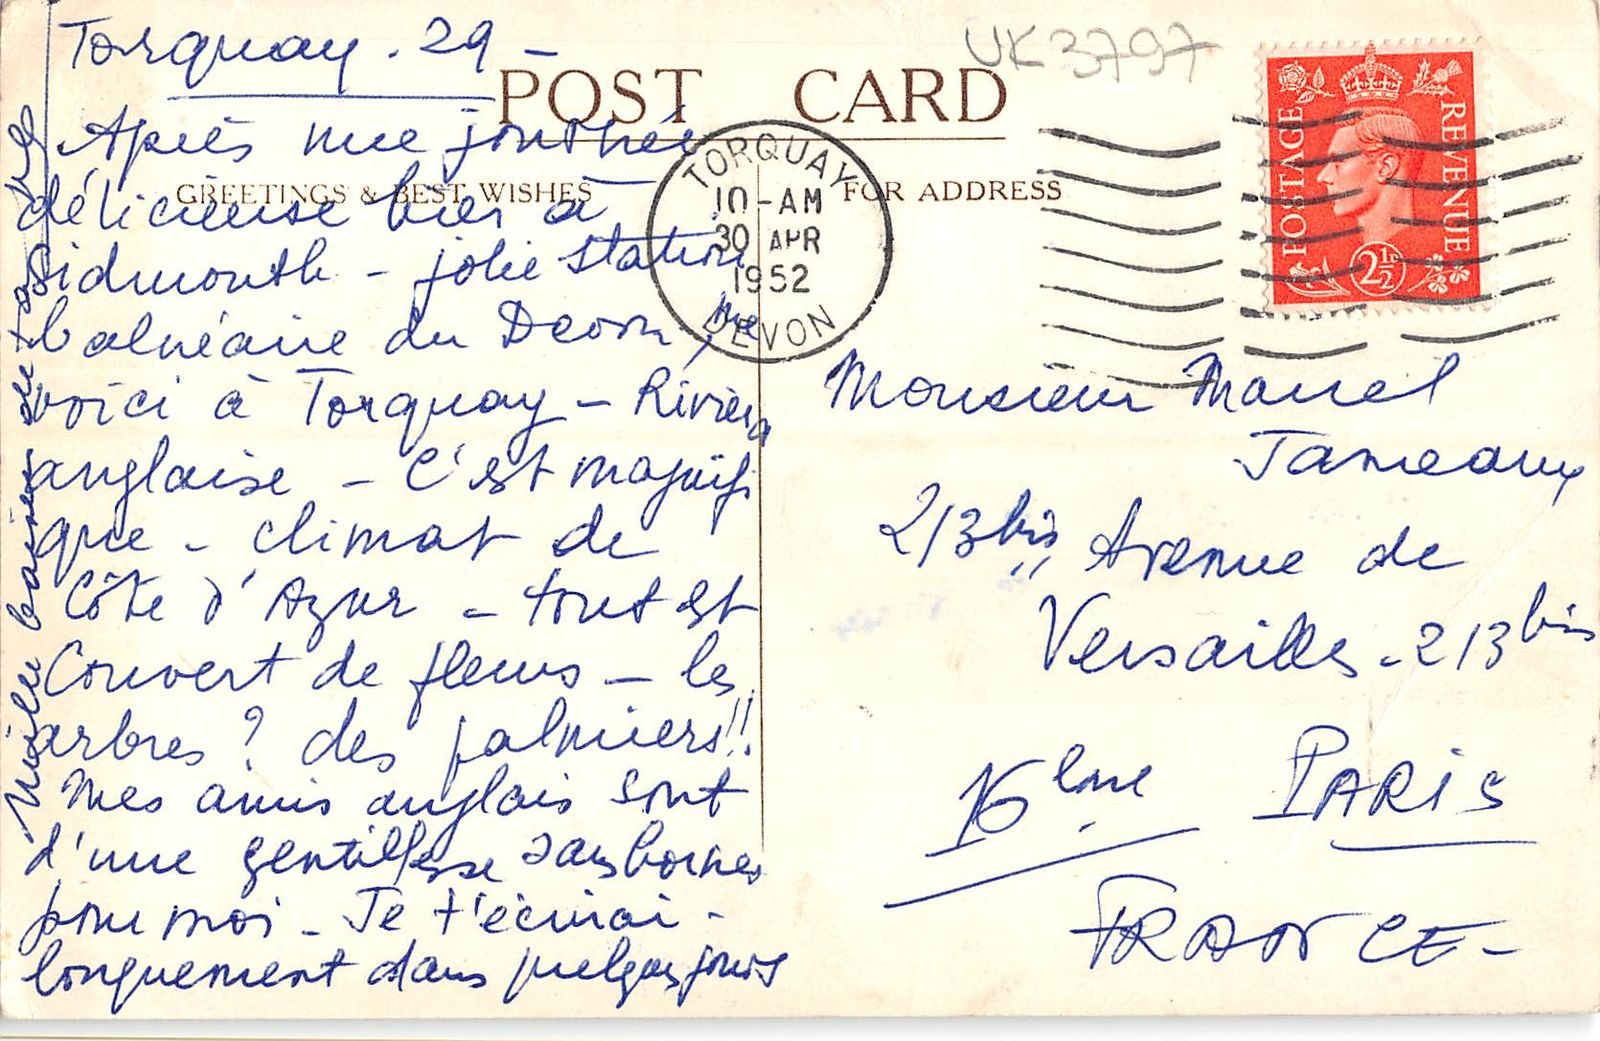 Torquay. 29 -
UK3797
POST CARD
GREETINGS & BEST WISHES
FOR ADDRESS
Après une journée
délicieuse hier à
Sidmouth - jolie station
balnéaire du Devon, me
voici à Torquay - Riviera
anglaise - C'est magnifi
que - climat de
Côte d'Azur - tout est
Couvert de fleurs - les
arbres ? des palmiers!!
Mes amis anglais sont
d'une gentillesse sans bornes
pour moi - Je t'écrirai -
longuement dans quelques jours
Mille baisers de ta
TORQUAY
10-AM
30 APR
1952
DEVON
POSTAGE
REVENUE
2½D
Monsieur Marcel
Jameaux
213 bis,, Avenue de
Versailles - 213 bis
16ème PARIS
FRANCE -